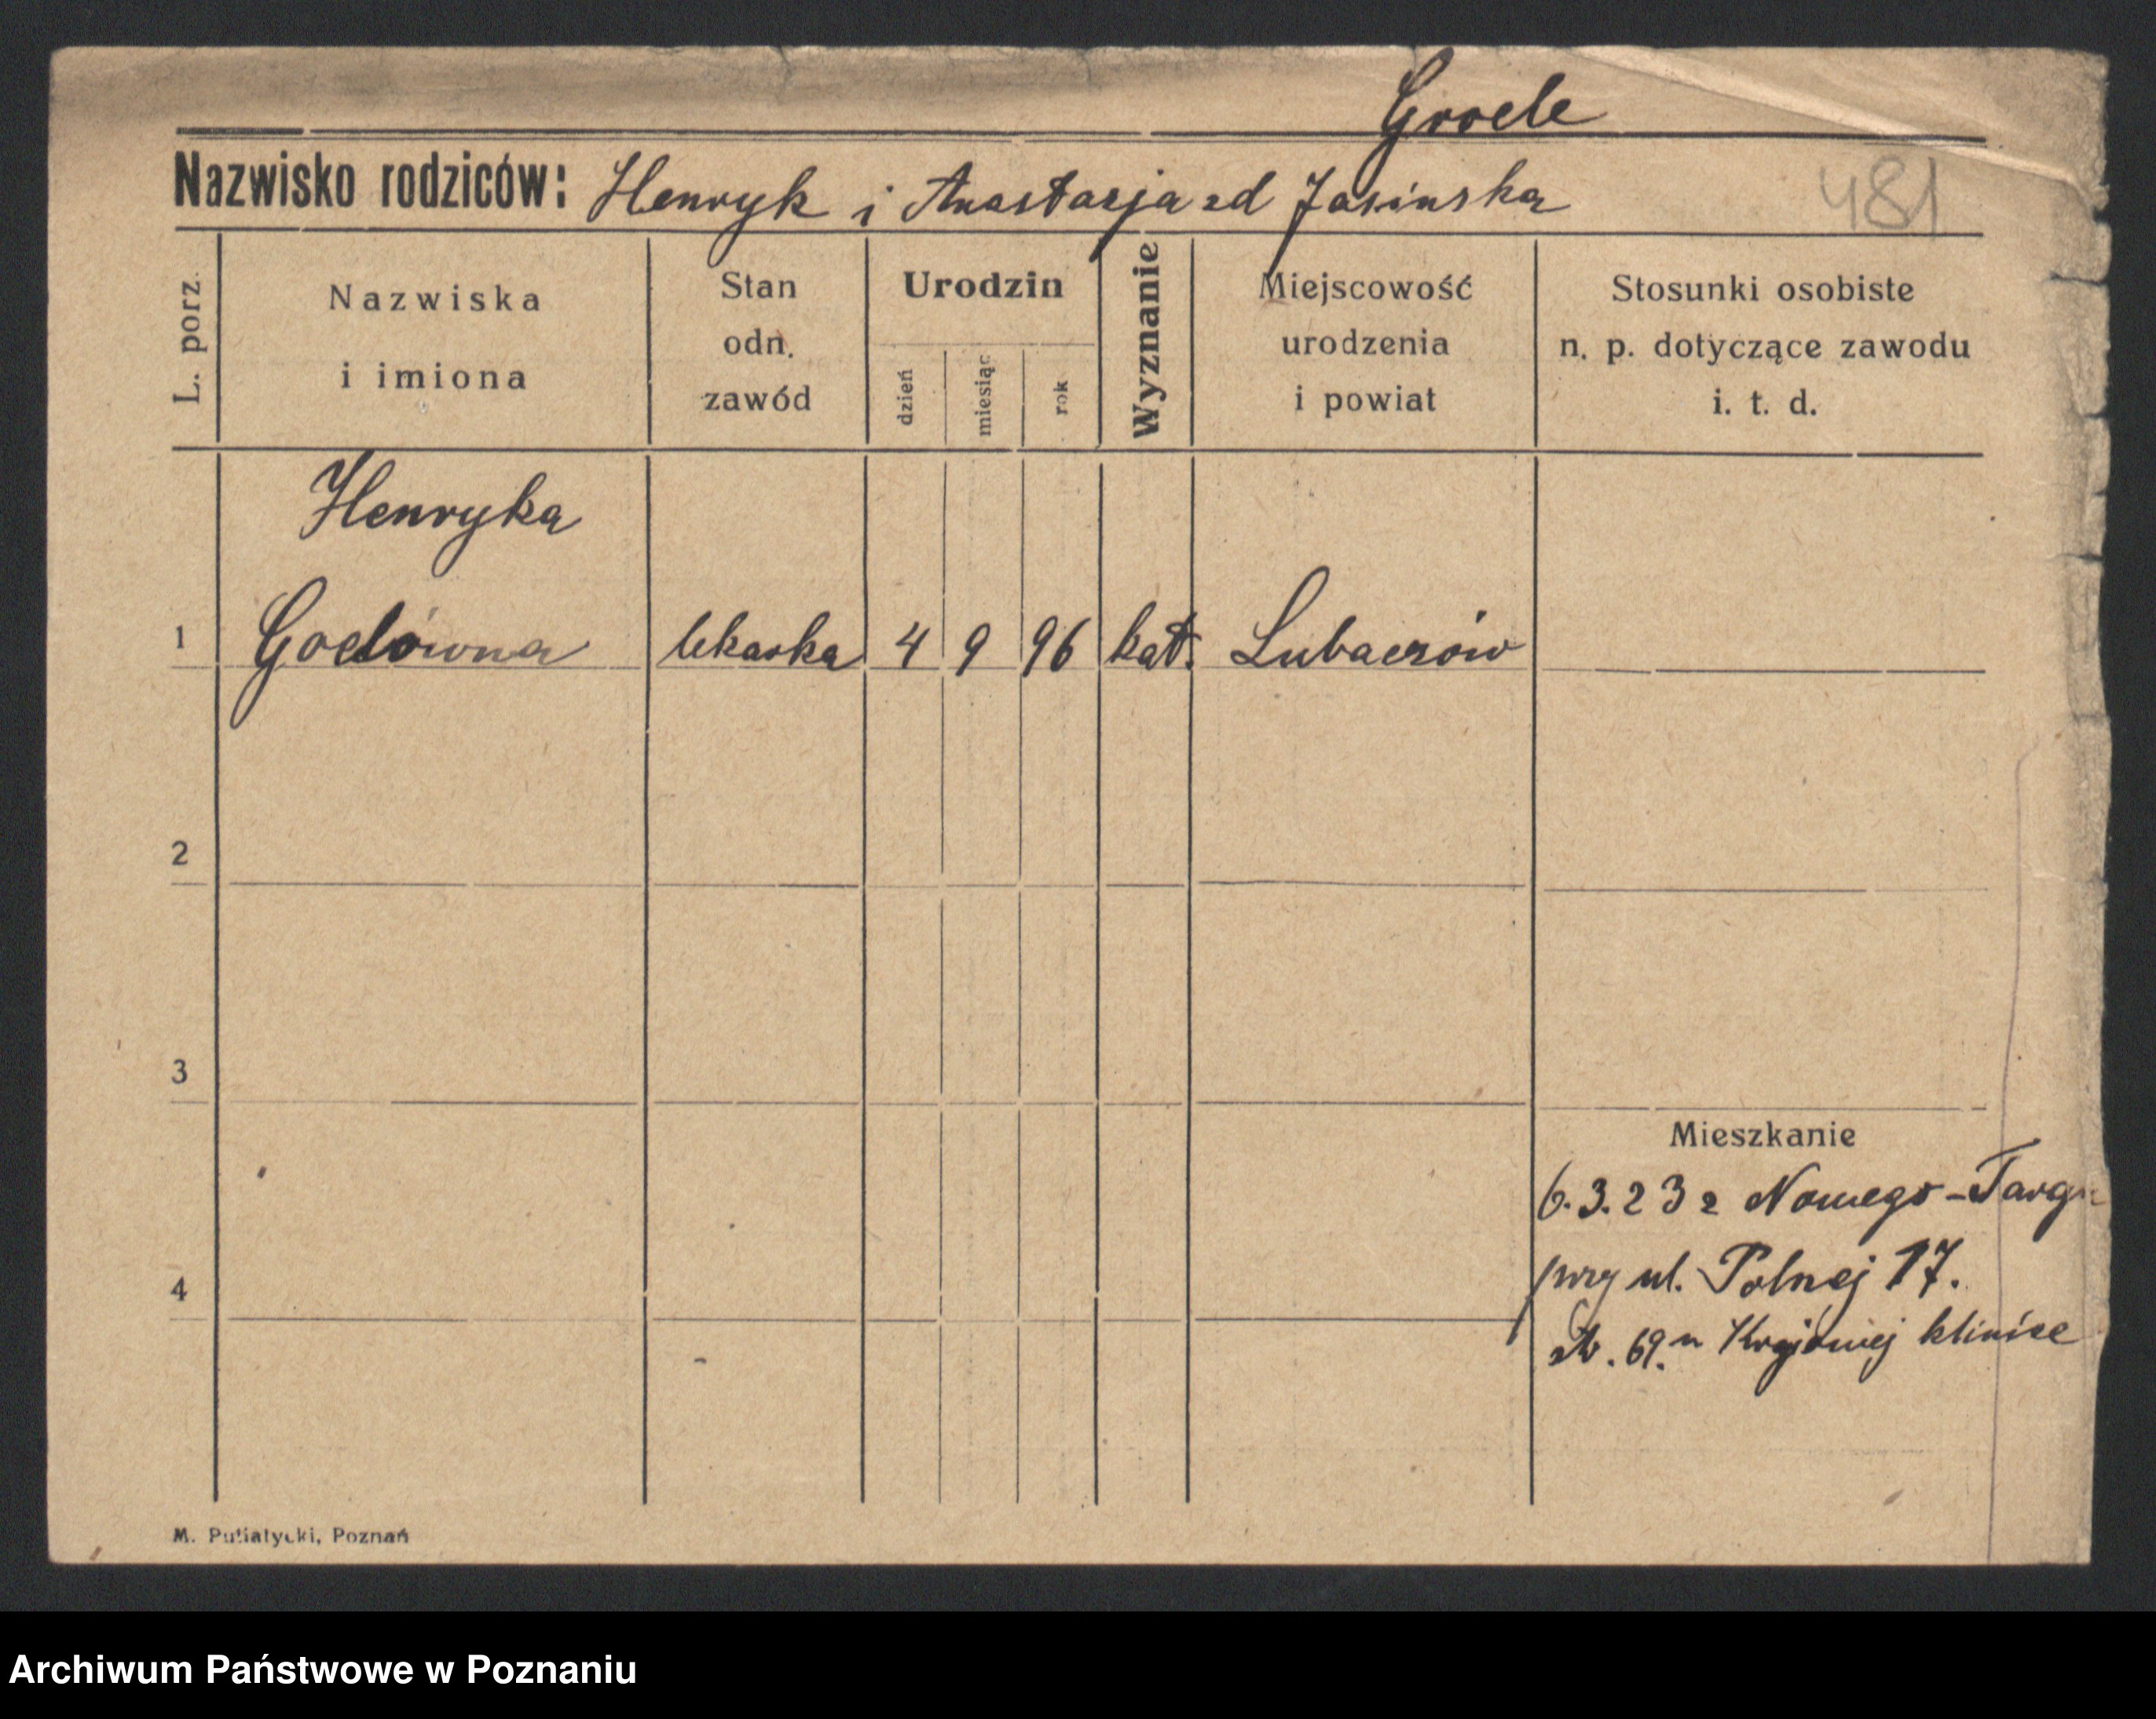 Groele
Nazwisko rodziców: Henryk i Anastazja zd Jasinska
481
L. porz.
Nazwiska
i imiona
Stan
odn.
zawód
Urodzin
dzień
miesiąc
rok
Wyznanie
Miejscowość
urodzenia
i powiat
Stosunki osobiste
n. p. dotyczące zawodu
i. t. d.
Henryka
1 lekarka 4 9 96 kat. Lubaczów
2
3
Mieszkanie
6.3.23 z Nowego-Targu
4
przy ul. Polnej 17.
69. Krajowej klinice
M. Putiatycki, Poznań
Archiwum Państwowe w Poznaniu